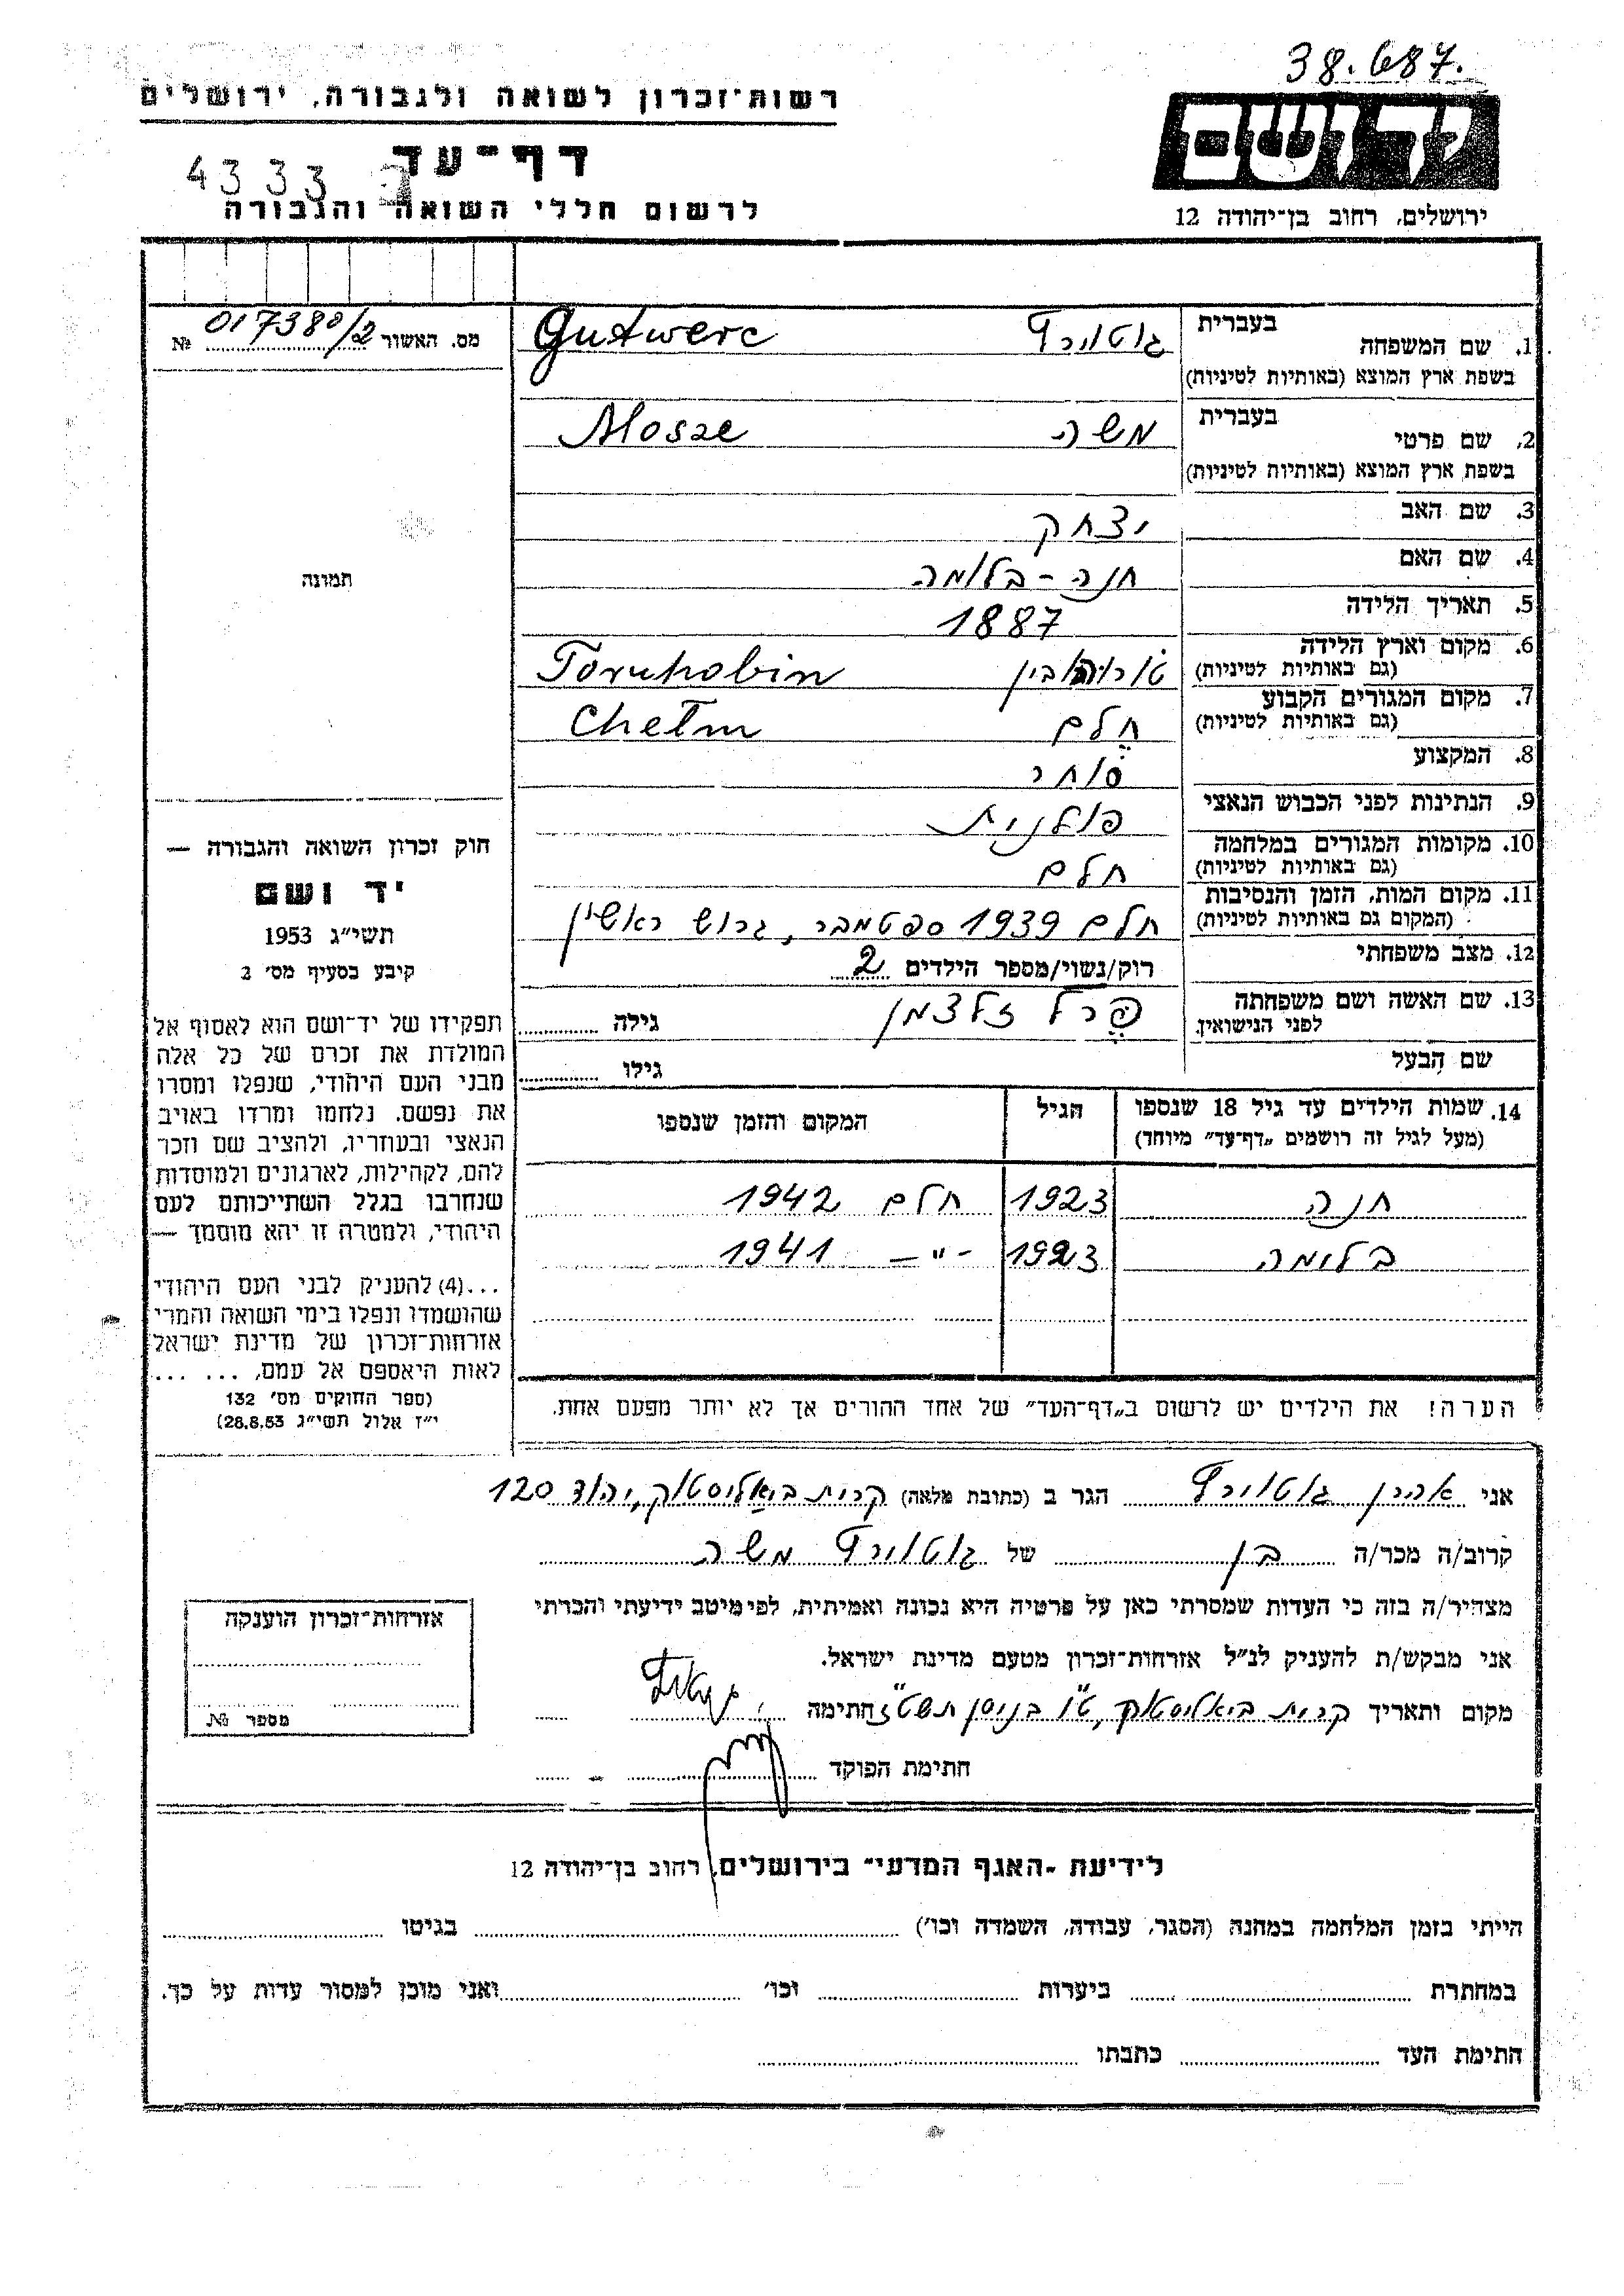 38.687.
רשות־זכרון לשואה ולגבורה, ירושלים
ידושם
דף־עד
4333
לרשום חללי השואה והגבורה
ירושלים, רחוב בן־יהודה 12
מס. האשור № 017380/2
1. שם המשפחה בעברית גוטוורץ Gutwerc
בשפת ארץ המוצא (באותיות לטיניות)
2. שם פרטי בעברית משה Mosze
בשפת ארץ המוצא (באותיות לטיניות)
3. שם האב יצחק
4. שם האם חנה - בלומה
5. תאריך הלידה 1887
6. מקום וארץ הלידה Toruhobin
(גם באותיות לטיניות)
7. מקום המגורים הקבוע חלם Chełm
(גם באותיות לטיניות)
8. המקצוע סוחר
9. הנתינות לפני הכבוש הנאצי פולנית
10. מקומות המגורים במלחמה חלם
(גם באותיות לטיניות)
11. מקום המות, הזמן והנסיבות חלם 1939 ספטמבר, גרוש ראשון
(המקום גם באותיות לטיניות)
12. מצב משפחתי רוק/נשוי/מספר הילדים 2
13. שם האשה ושם משפחתה פרל זלצמן גילה
לפני הנישואין
שם הבעל גילו
14. שמות הילדים עד גיל 18 שנספו הגיל המקום והזמן שנספו
(מעל לגיל זה רושמים „דף־עד” מיוחד)
חנה 1923 חלם 1942
בלומה 1923 -"- 1941
הערה! את הילדים יש לרשום ב„דף־העד” של אחד ההורים אך לא יותר מפעם אחת.
תמונה
חוק זכרון השואה והגבורה —
יד ושם
תשי״ג 1953
קיבע בסעיף מס׳ 2
תפקידו של יד־ושם הוא לאסוף אל
המולדת את זכרם של כל אלה
מבני העם היהודי, שנפלו ומסרו
את נפשם. נלחמו ומרדו באויב
הנאצי ובעוזריו, ולהציב שם וזכר
להם, לקהילות, לארגונים ולמוסדות
שנחרבו בגלל השתייכותם לעם
היהודי, ולמטרה זו יהא מוסמך —
...(4) להעניק לבני העם היהודי
שהושמדו ונפלו בימי השואה והמרי
אזרחות־זכרון של מדינת ישראל
לאות היאספם אל עמם, ... ...
(ספר החוקים מס׳ 132
י״ז אלול תשי״ג 28.8.53)
אני אהרן גוטוורץ הגר ב (כתובת מלאה) קרית ביאליסטוק, יהוד 120
קרוב/ה מכר/ה בן של גוטוורץ משה
מצהיר/ה בזה כי העדות שמסרתי כאן על פרטיה היא נכונה ואמיתית, לפי מיטב ידיעתי והכרתי
אני מבקש/ת להעניק לנ״ל אזרחות־זכרון מטעם מדינת ישראל.
מקום ותאריך קרית ביאליסטוק, ט"ו בניסן תשט"ז חתימה
חתימת הפוקד
אזרחות־זכרון הוענקה
מספר №
לידיעת ״האגף המדעי״ בירושלים, רחוב בן־יהודה 12
הייתי בזמן המלחמה במחנה (הסגר, עבודה, השמדה וכו׳) בגיטו
במחתרת ביערות וכו׳ ואני מוכן למסור עדות על כך.
חתימת העד כתבתו